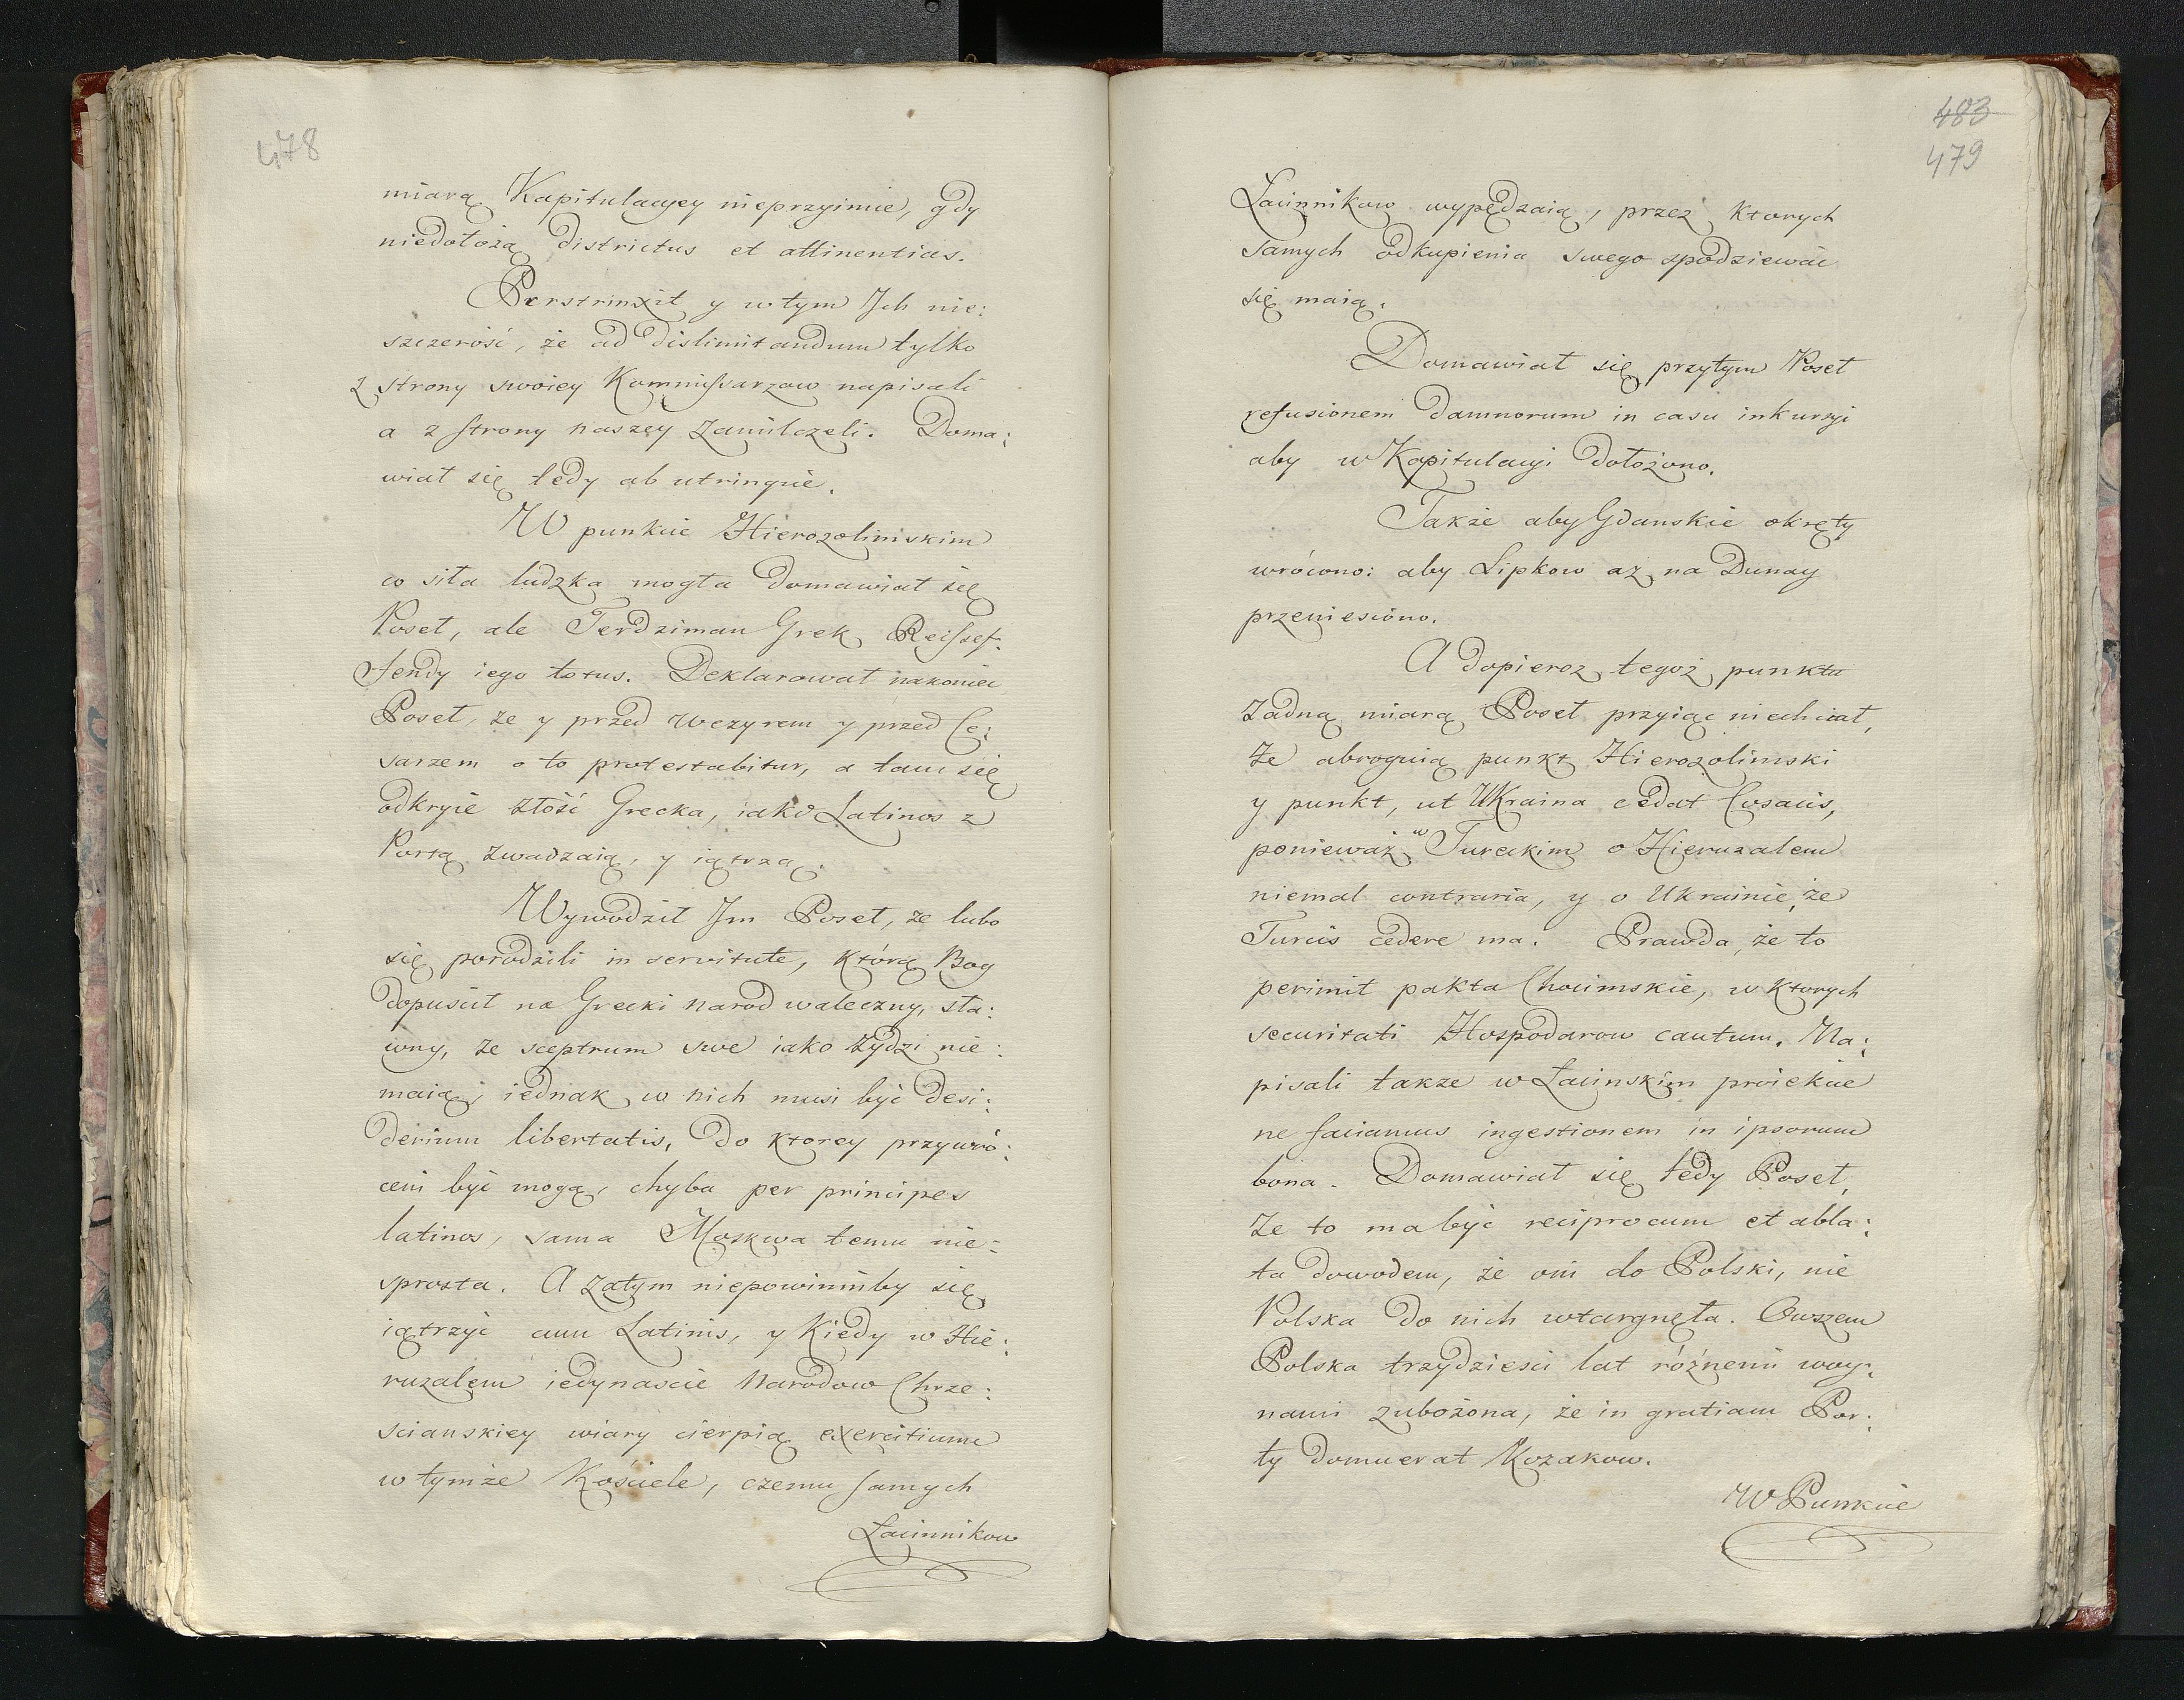 478
miarą Kapitulacyey nieprzyimie, gdy
niedołożą districtus et attinentias.
Perstrinxit y w tym Jch nie:
szczerość, że ad dislimitandum tylko
z strony swoiey Kommissarzow napisali
a z strony naszey zamilczeli. Doma:
wiał się tedy ab utrinque.
W punkcie Hierozolimskim
co siła ludzka mogła domawiał się
Poseł, ale Terdziman Grek Reissef:
fendy iego totus. Deklarował nakoniec
Poseł, że y przed Wezyrem y przed Ce:
sarzem o to protestabitur, a tam się
odkryie złość Grecka, iako Latinos z
Portą zwadzaią, y iątrzą.
Wywodził Jm Poseł, że lubo
się porodzili in servitute, którą Bog
dopuścił na Grecki narod waleczny, sła:
wny, że sceptrum swe iako żydzi nie:
maią; iednak w nich musi być desi:
derium libertatis, do ktorey przywró:
ceni być mogą, chyba per principes
latinos, sama Moskwa temu nie:
sprosta. A zatym niepowinniby się
iątrzyć cum Latinis, y kiedy w Hie:
ruzalem iedynascie Narodow Chrze:
scianskiey wiary cierpią exercitium
w tymże Kościele, czemu samych
Łacinnikow
483
479
Łacinnikow wypędzaią, przez ktorych
samych odkupienia swego spodziewać
się maią.
Domawiał się przytym Poseł
refusionem damnorum in casu inkursyi
aby w Kapitulacyi dołożono.
Także aby Gdanskie okręty
wrócono: aby Lipkow aż na Dunay
przeniesiono.
A dopieroż tegoż punktu
żadną miarą Poseł przyiąc niechciał,
że abroguią punkt Hierozolimski
y punkt, ut Ukraina cedat Cosacis,
ponieważ w Tureckim o Hieruzalem
niemal contraria, y o Ukrainie, że
Turcis cedere ma. Prawda, że to
perimit pakta Chocimskie, w ktorych
securitati Hospodarow cautum. Na:
pisali takze w Łacinskim proiekcie
ne faciamus ingestionem in ipsorum
bona. Domawiał się tedy Poseł,
że to ma być reciprocum et abla:
ta dowodem, że oni do Polski, nie
Polska do nich wtargnęła. Owszem
Polska trzydziesci lat różnemi woy:
nami zubożona, że in gratiam Por:
ty domuerat Kozakow.
W Punkcie